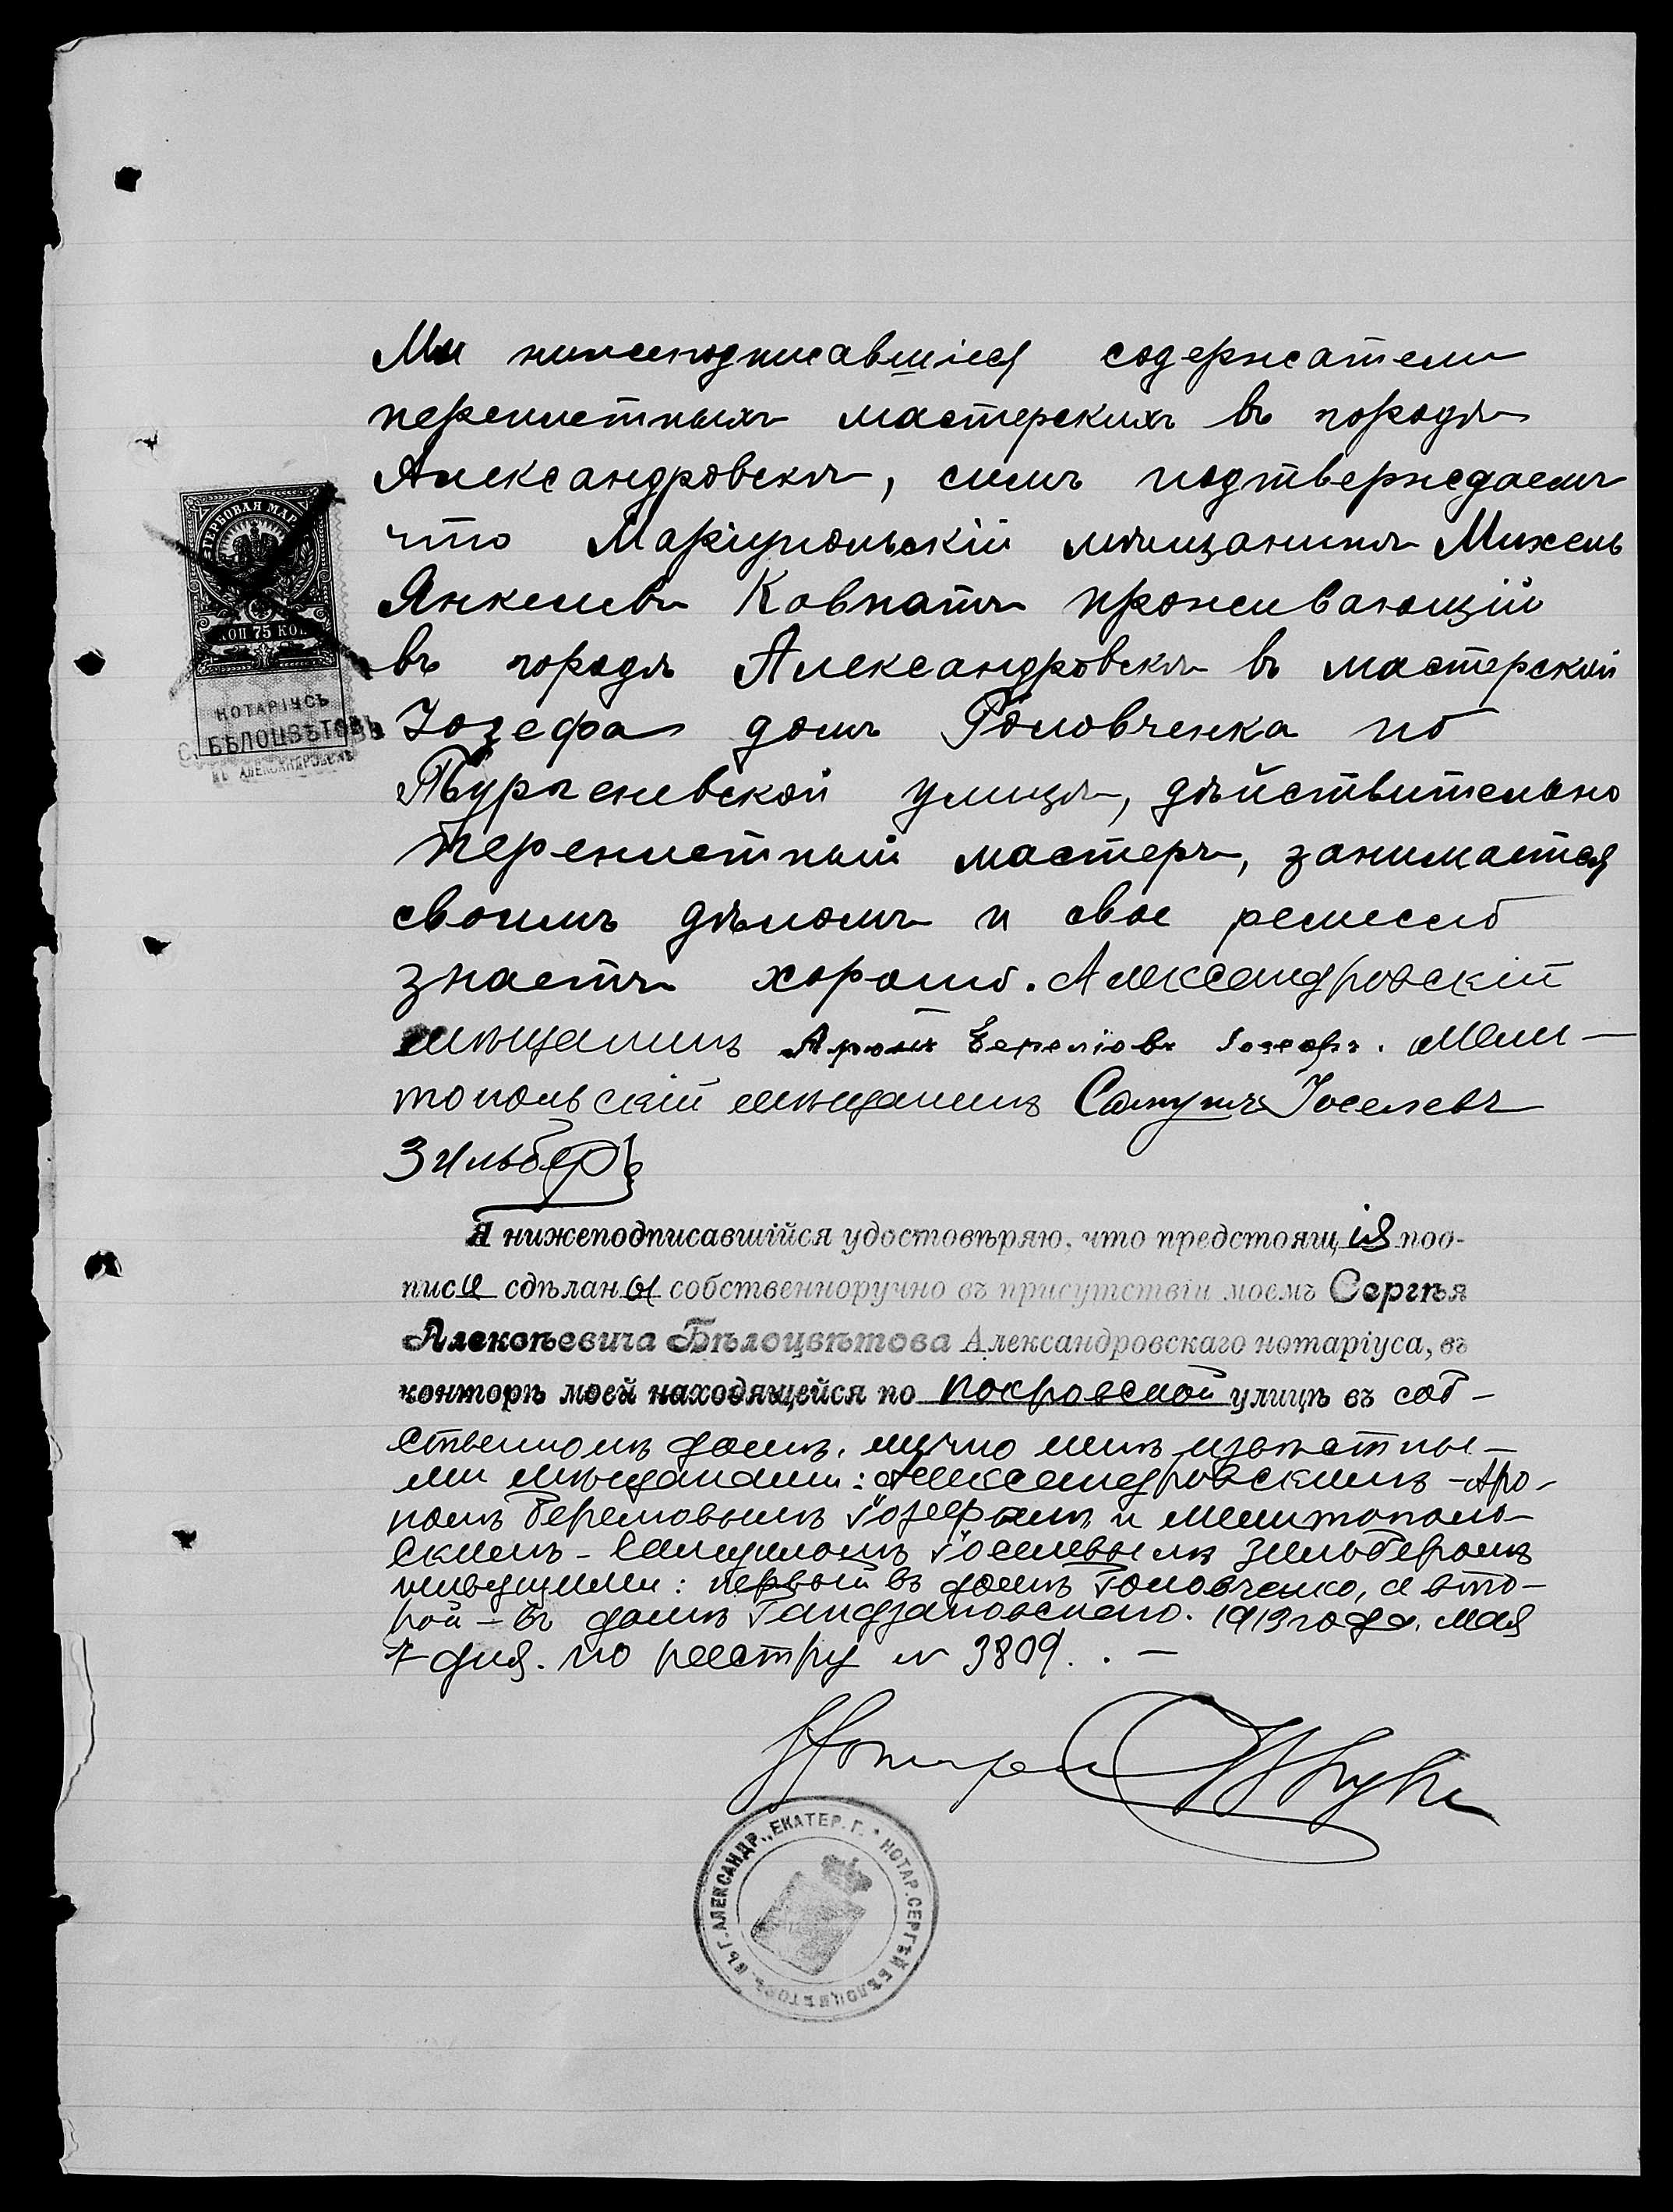 Мы нижеподписавшіеся содержатели
переплетныхъ мастерскихъ въ городѣ
Александровскѣ, симъ подтверждаемъ
что Маріупольскій мѣщанинъ Михель
Янкелевъ Ковнатъ проживающій
въ городѣ Александровскѣ въ мастерской
Іозефа домъ Головченка по
Тургеневской улицѣ, дѣйствительно
переплетный мастеръ, занимается
своимъ дѣломъ и свое ремесло
знаетъ хорошо. Александровскій
мѣщанинъ Аронъ Береліовъ Іозефъ. Мели-
топольскій мѣщанинъ Самуилъ Іоселевъ
Зильберъ
ГЕРБОВАЯ МАР
КОП 75 КОП
НОТАРІУСЪ
С. БѢЛОЦВѢТОВЪ
ВЪ АЛЕКСАНДРОВСКѢ
Я нижеподписавшійся удостовѣряю, что предстоящія под-
писи сдѣланы собственноручно въ присутствіи моемъ Сергѣя
Алексѣевича Бѣлоцвѣтова Александровскаго нотаріуса, въ
конторѣ моей находящейся по Покровской улицѣ въ соб-
ственномъ домѣ, лично мнѣ извѣстны-
ми мѣщанами: Александровскимъ - Аро-
номъ Береловымъ Іозефомъ и Мелитополь-
скимъ - Самуиломъ Іоселевымъ Зильберомъ
живущими: первый въ домѣ Головченко, а вто-
рой - въ домѣ Гандзановскаго. 1913 года, мая
7 дня. По реестру № 3809. . -
Нотаріусъ
ВЪ Г. АЛЕКСАНДР., ЕКАТЕР. Г. * НОТАР. СЕРГѢЙ БѢЛОЦВѢТОВЪ